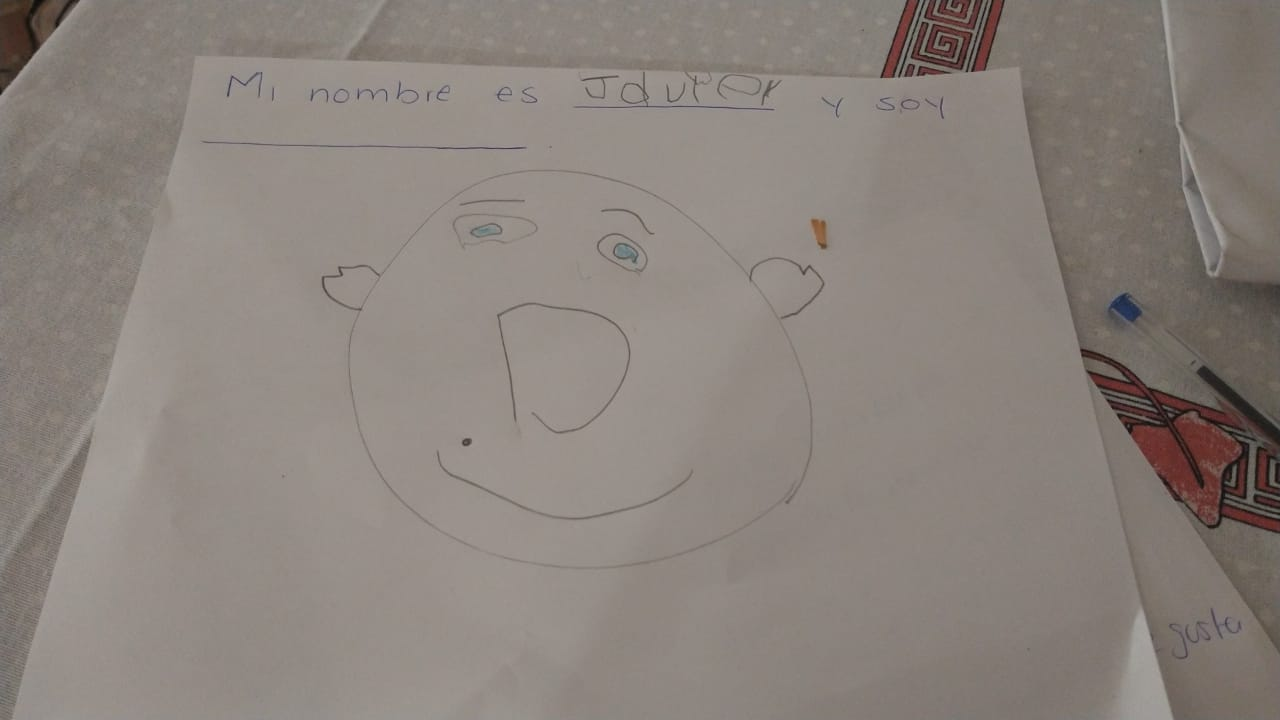 Mi nombre es Javier y soy
gusta